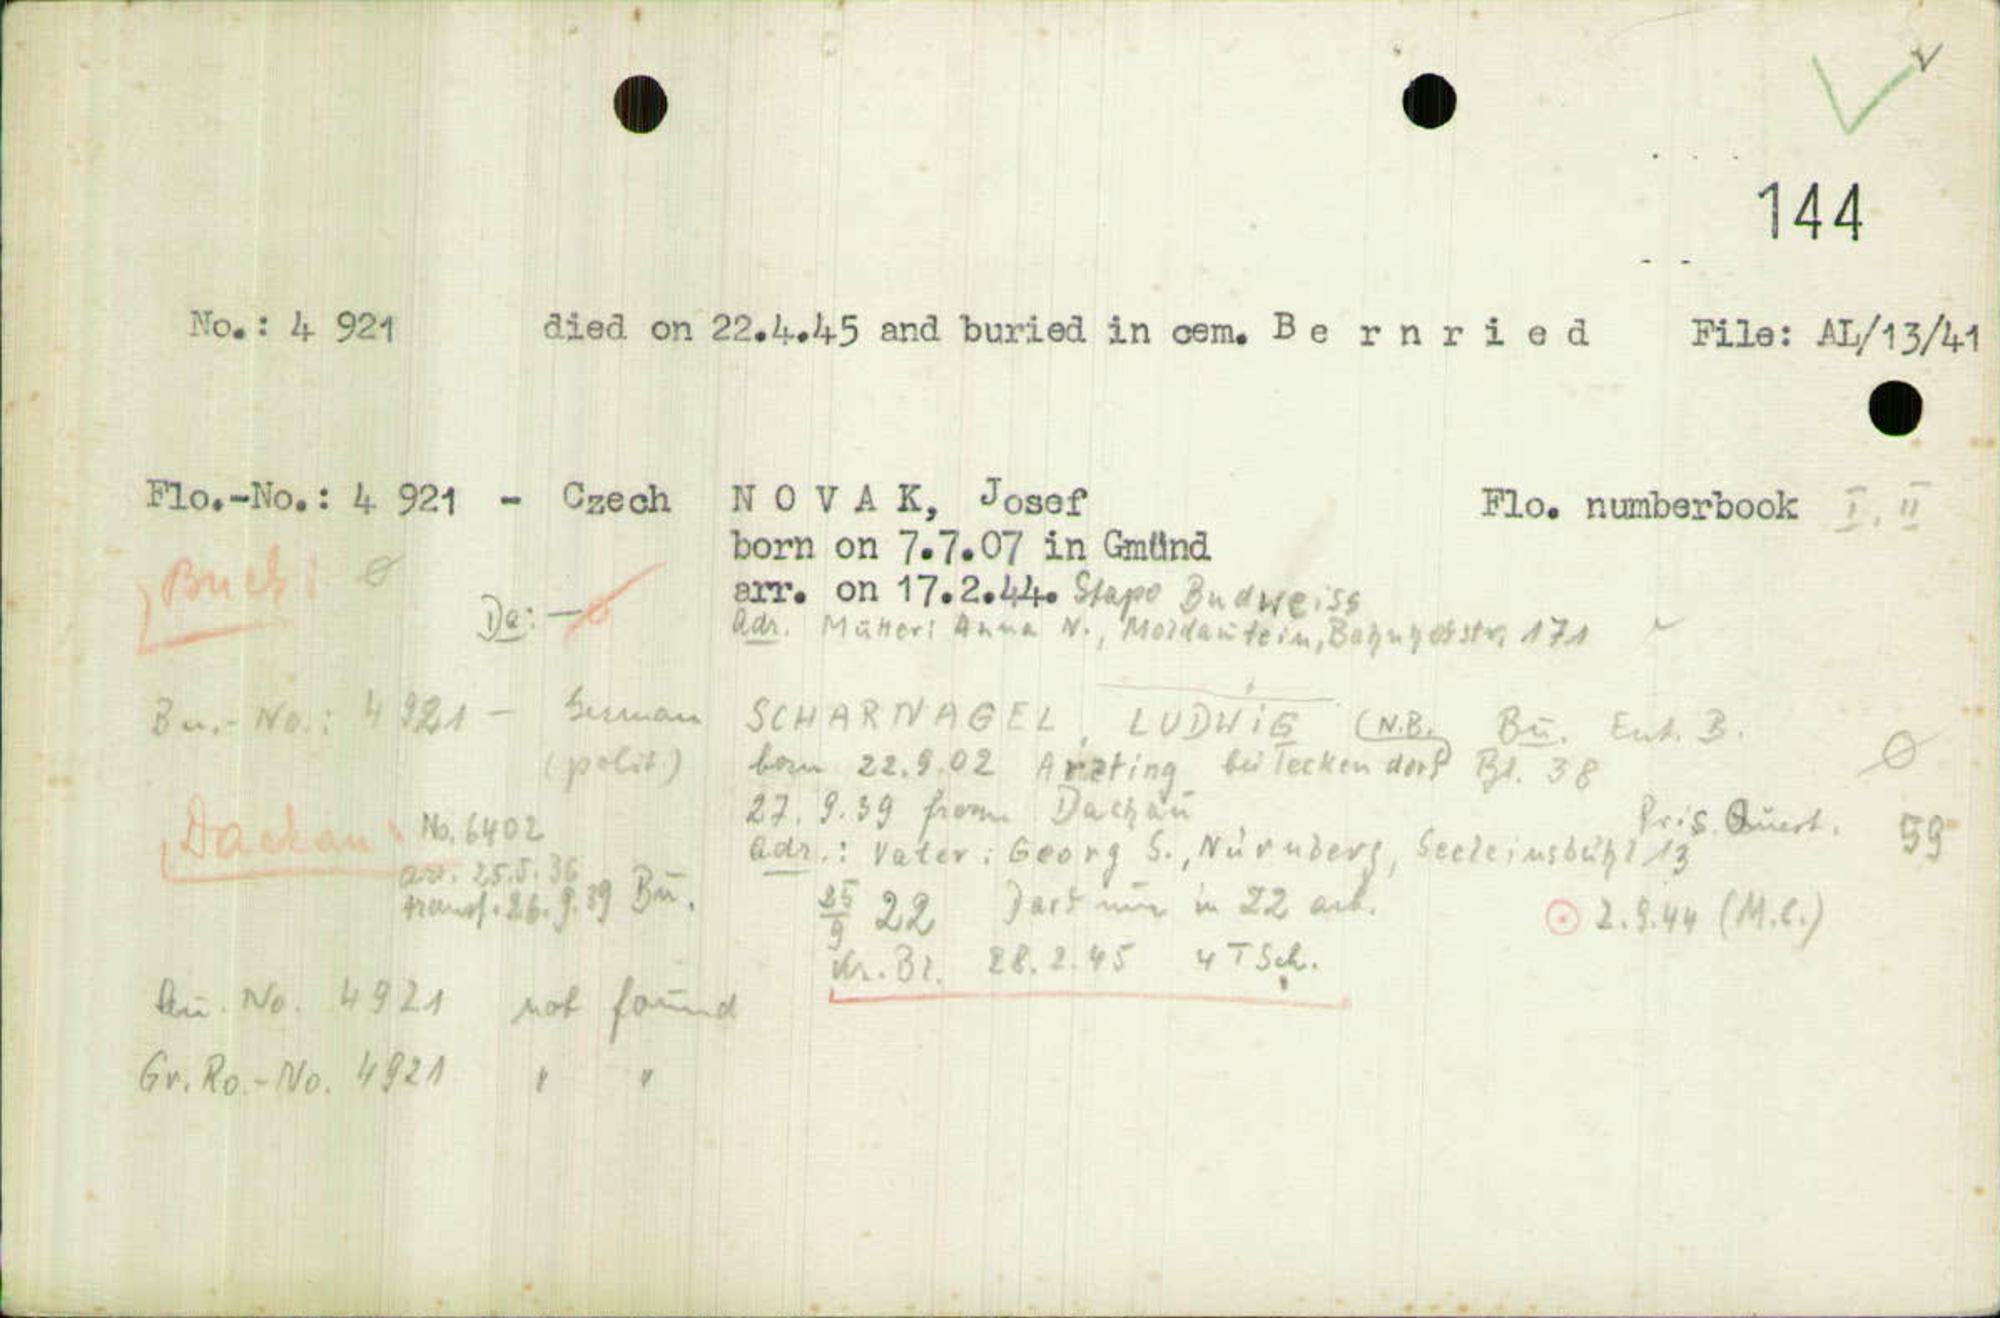 144
No.: 4 921 died on 22.4.45 and buried in cem. B e r n r i e d File: AL/13/41
Flo.-No.: 4 921 - Czech N O V A K, Josef Flo. numberbook I, II
born on 7.7.07 in Gmünd
Buch: ø
arr. on 17.2.44. Stapo Budweiss
Da: — ø
Adr. Mutter: Anna N., Moldautein, Bahnhofstr. 171
Bu.-No.: 4 921 - German SCHARNAGEL, LUDWIG (N.B. Bu. Ent. B.
(polit.) born 22.9.02 Arzting bei Teckendorf Bl. 38 ø
27.9.39 from Dachau
Dachau: No. 6402 Pris. Quest. 59
Adr.: Vater: Georg S., Nürnberg, Seeleinsbühl 13
arr. 25.5.36
transf. 26.9.39 Bu.
25/9 22 Darf nur in 22 arb. 2.9.44 (M.C.)
Kr. Bl. 28.2.45 4 T Sch.
Au. No. 4921 not found
Gr. Ro.-No. 4921 " "